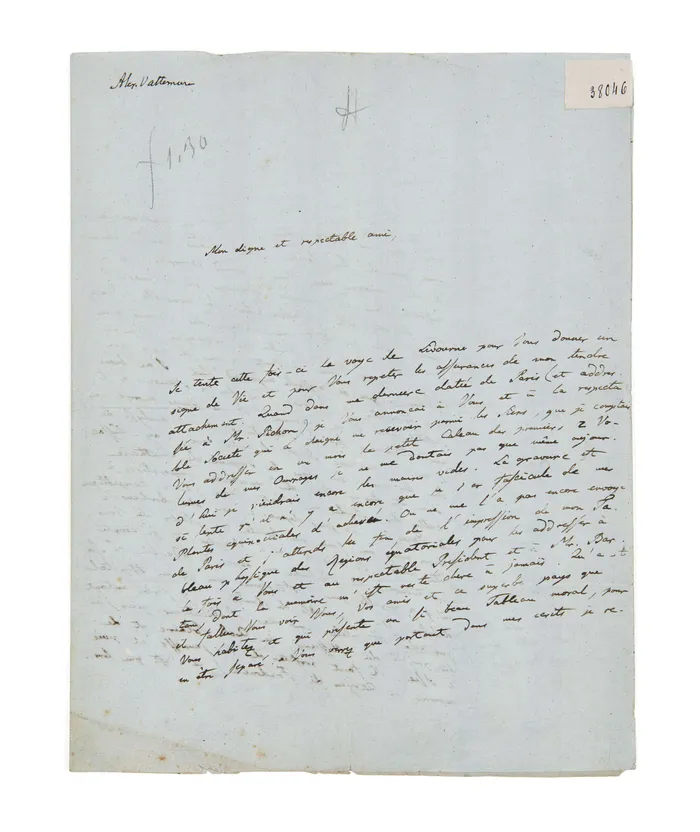 Alex Vattemare
38046
f 1,30
Mon digne et respectable ami,
Je tente cette fois-ci la voye de Livourne pour Vous donner un
signe de Vie et pour Vous repeter les assurances de mon tendre
attachement. Quand dans ma derniere datée de Paris (et addres-
sée à Mr. Pichon) je Vous annoncai à Vous et à la respecta-
ble Societé qui a daigné me recevoir parmi les Siens, que je comptais
Vous addresser en un mois le petit Cadeau des premiers 2 Vo-
lumes de mes Ouvrages je ne me doutais pas que même aujour-
d'hui je viendrais encore les mains vides. La gravure est
si lente qu'il n'y a encore que le 1er fascicule de mes
Plantes equinoctiales d'achevé. On ne me l'a pas encore envoyé
de Paris et j'attends la fin de l'impression de mon Ta-
bleau physique des Regions equatoriales pour les addresser à
la fois à Vous et au respectable President et à Mr. Bar-
ton dont la memoire m'est restée chere à jamais. Qu'a-t-
il fallu Vous voir Vous, Vos amis et ce superbe pays que
Vous habitez et qui présente un si beau Tableau moral, pour
en être separé. Vous verrez que partout dans mes ecrits je re-